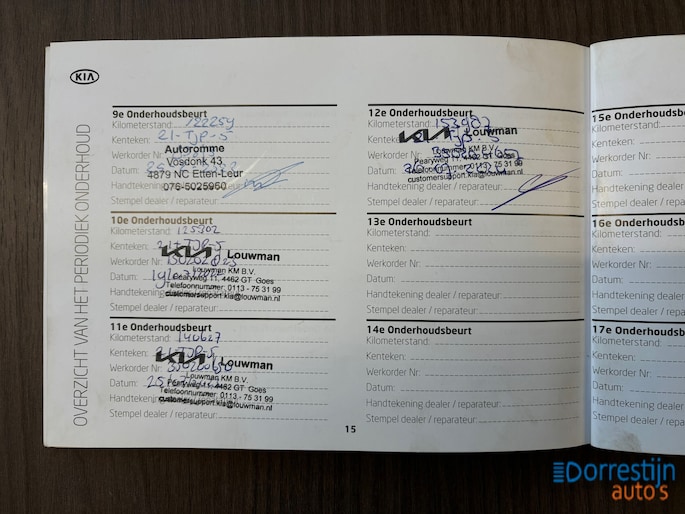 KIA
OVERZICHT VAN HET PERIODIEK ONDERHOUD
9e Onderhoudsbeurt
Kilometerstand: 122259
Kenteken: 21-TJP-5
Autoromme
Werkorder Nr:
Vosdonk 43
Datum:
4879 NC Etten-Leur
Handtekening
076-5025960
Stempel dealer / reparateur:
10e Onderhoudsbeurt
Kilometerstand: 125302
Kenteken: 21-TJP-5
KIA Louwman
Werkorder Nr:
Louwman KM B.V.
Datum:
Pearyweg 11, 4462 GT Goes
Telefoonnummer: 0113 - 75 31 99
customersupport.kia@louwman.nl
Stempel dealer / reparateur:
11e Onderhoudsbeurt
Kilometerstand: 140627
Kenteken: 21-TJP-5
KIA Louwman
Werkorder Nr:
Louwman KM B.V.
Datum:
Pearyweg 11, 4462 GT Goes
Telefoonnummer: 0113 - 75 31 99
customersupport.kia@louwman.nl
Stempel dealer / reparateur:
12e Onderhoudsbeurt
Kilometerstand: 153907
Kenteken:
KIA Louwman
Werkorder Nr:
Louwman KM B.V.
Pearyweg 11, 4462 GT Goes
Datum:
Telefoonnummer: 0113 - 75 31 99
customersupport.kia@louwman.nl
Handtekening
Stempel dealer / reparateur:
13e Onderhoudsbeurt
Kilometerstand:
Kenteken:
Werkorder Nr:
Datum:
Handtekening dealer / reparateur:
Stempel dealer / reparateur:
14e Onderhoudsbeurt
Kilometerstand:
Kenteken:
Werkorder Nr:
Datum:
Handtekening dealer / reparateur:
Stempel dealer / reparateur:
15
15e Onderhoudsb
Kilometerstand:
Kenteken:
Werkorder Nr:
Datum:
Handtekening de
Stempel dealer / r
16e Onderhouds
Kilometerstand:
Kenteken:
Werkorder Nr:
Datum:
Handtekening de
Stempel dealer /
17e Onderhouds
Kilometerstand:
Kenteken:
Werkorder Nr:
Datum:
Handtekening d
Stempel dealer
Dorrestijn
auto's